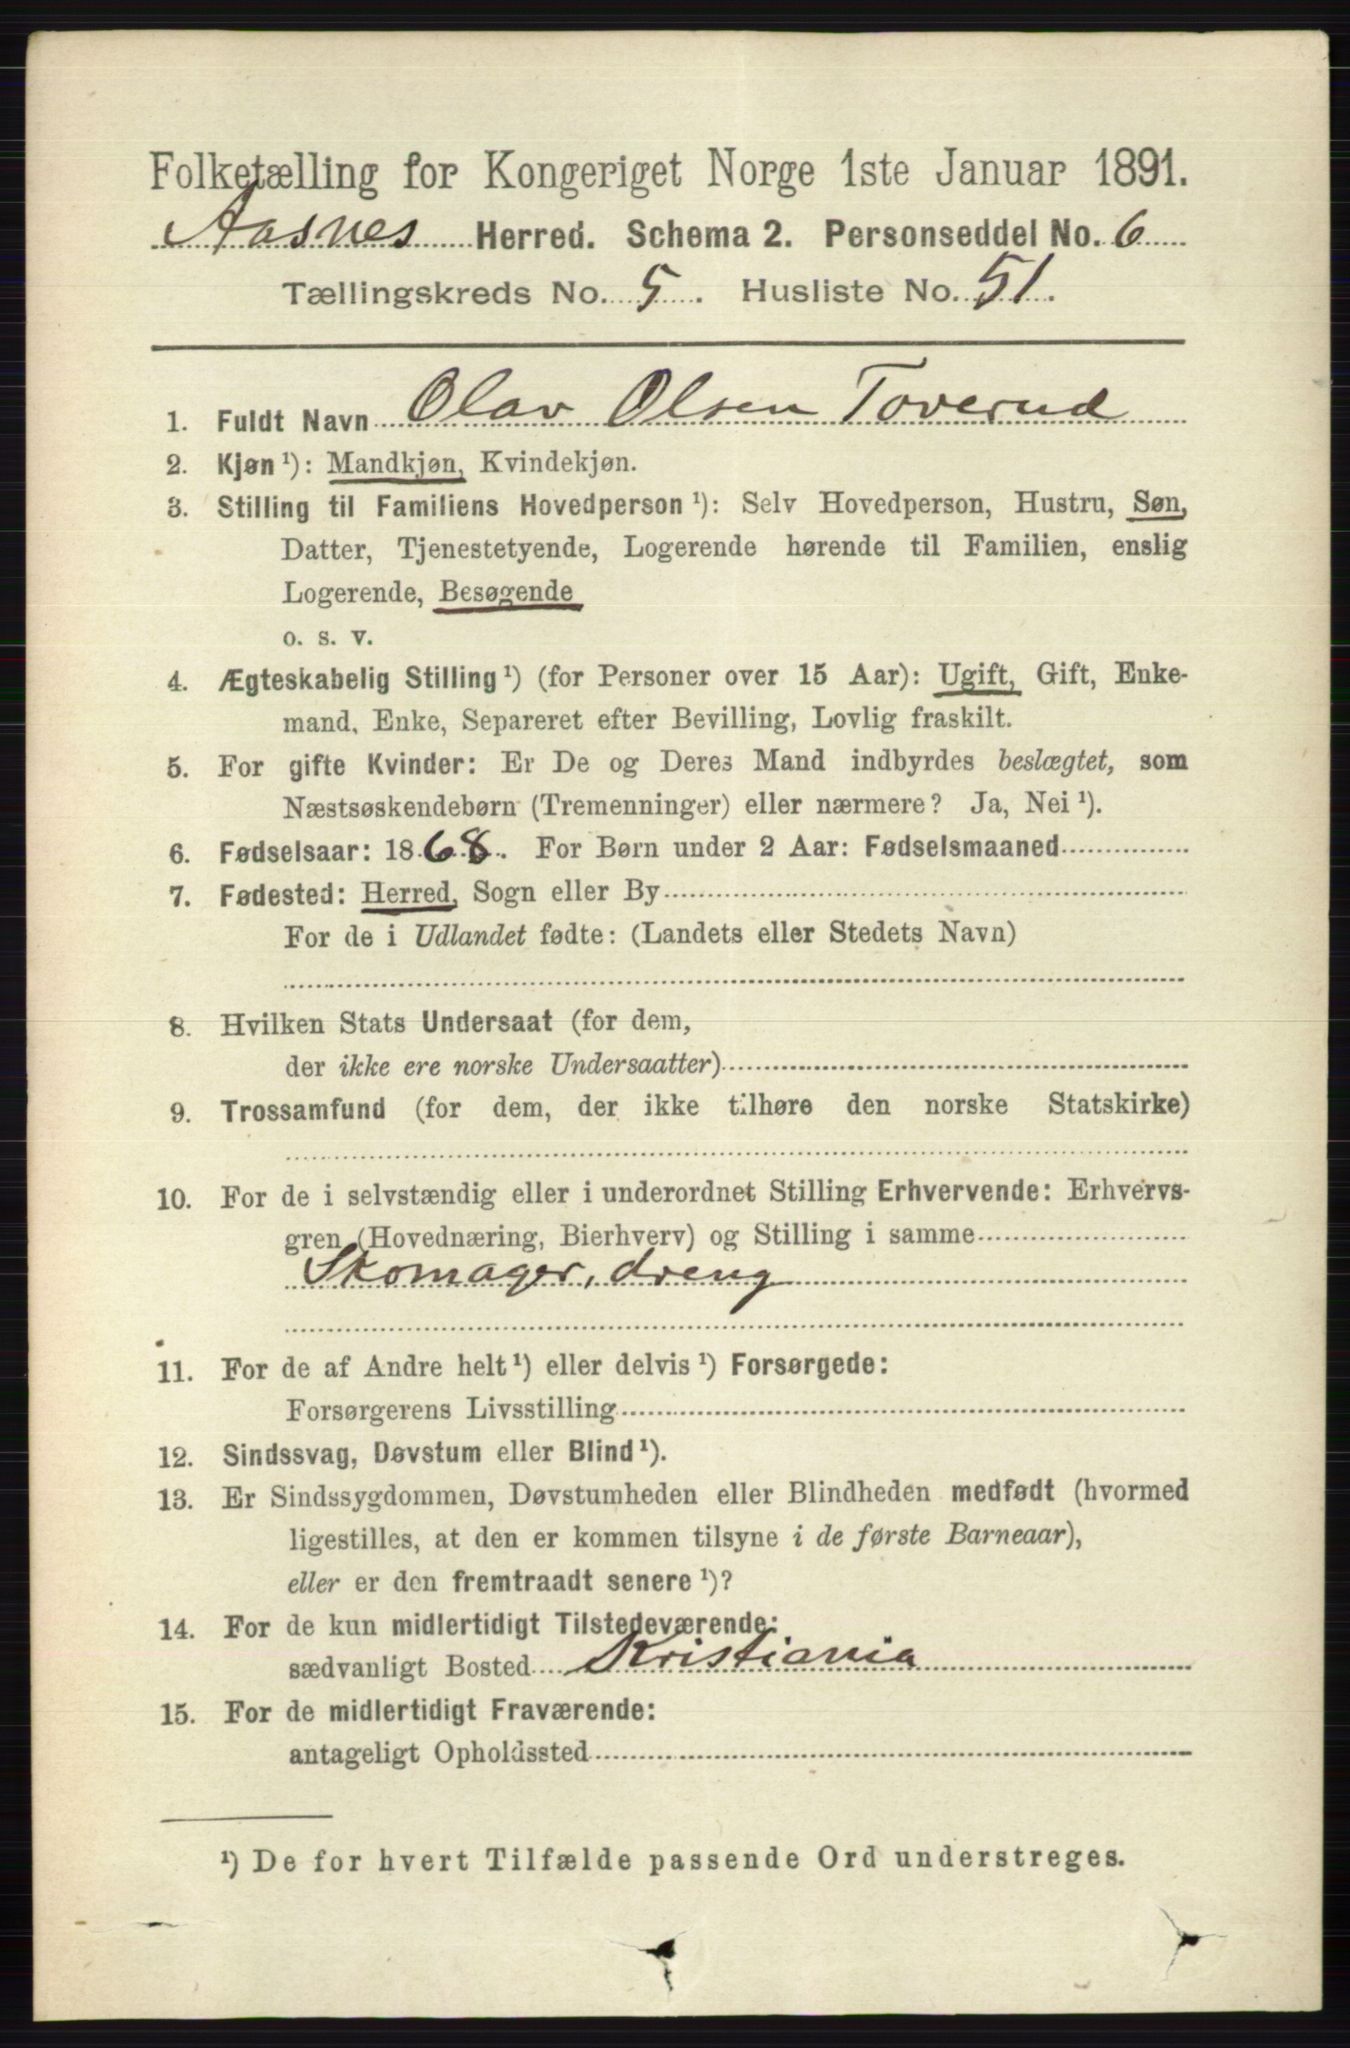 Folketælling for Kongeriget Norge 1ste Januar 1891.
Aasnes Herred. Schema 2. Personseddel No. 6
Tællingskreds No. 5. Husliste No. 51.
1. Fuldt Navn Olav Olsen Toverud
2. Kjøn ¹): Mandkjøn, Kvindekjøn.
3. Stilling til Familiens Hovedperson ¹): Selv Hovedperson, Hustru, Søn,
Datter, Tjenestetyende, Logerende hørende til Familien, enslig
Logerende, Besøgende
o. s. v.
4. Ægteskabelig Stilling ¹) (for Personer over 15 Aar): Ugift, Gift, Enke-
mand, Enke, Separeret efter Bevilling, Lovlig fraskilt.
5. For gifte Kvinder: Er De og Deres Mand indbyrdes beslægtet, som
Næstsøskendebørn (Tremenninger) eller nærmere? Ja, Nei ¹).
6. Fødselsaar: 1868. For Børn under 2 Aar: Fødselsmaaned
7. Fødested: Herred, Sogn eller By
For de i Udlandet fødte: (Landets eller Stedets Navn)
8. Hvilken Stats Undersaat (for dem,
der ikke ere norske Undersaatter)
9. Trossamfund (for dem, der ikke tilhøre den norske Statskirke)
10. For de i selvstændig eller i underordnet Stilling Erhvervende: Erhvervs-
gren (Hovednæring, Bierhverv) og Stilling i samme
Skomager, dreng
11. For de af Andre helt ¹) eller delvis ¹) Forsørgede:
Forsørgerens Livsstilling
12. Sindssvag, Døvstum eller Blind ¹).
13. Er Sindssygdommen, Døvstumheden eller Blindheden medfødt (hvormed
ligestilles, at den er kommen tilsyne i de første Barneaar),
eller er den fremtraadt senere ¹)?
14. For de kun midlertidigt Tilstedeværende:
sædvanligt Bosted Kristiania
15. For de midlertidigt Fraværende:
antageligt Opholdssted
¹) De for hvert Tilfælde passende Ord understreges.